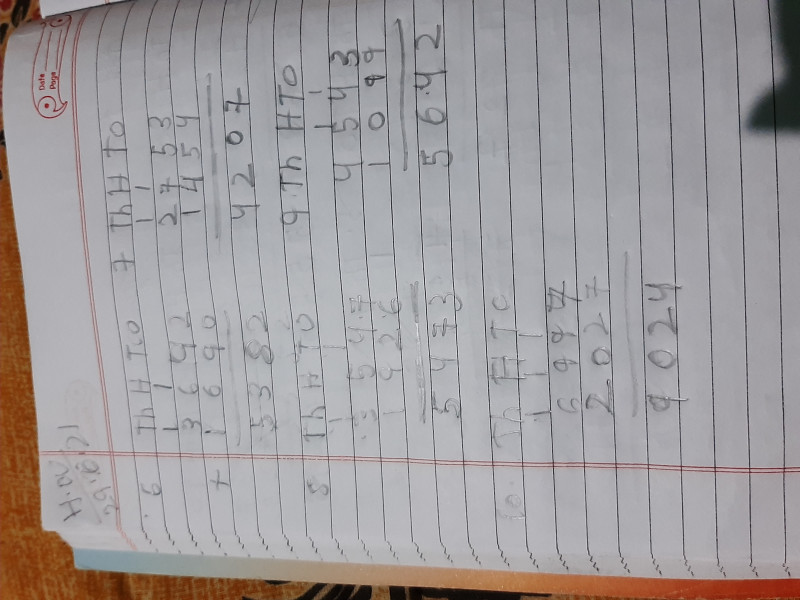 Date
Page
H.W
29.6.21
6 Th H T O
1 1
3 6 4 2
+ 1 6 9 0
5 3 8 2
7 Th H T O
1 1
2 7 5 3
1 4 5 4
4 2 0 7
8 Th H T O
1 1
3 5 4 7
1 9 2 6
5 4 7 3
9 Th H T O
1 1
4 5 4 3
1 0 9 9
5 6 4 2
10. Th H T O
1 1 1
6 9 9 7
2 0 2 7
9 0 2 4